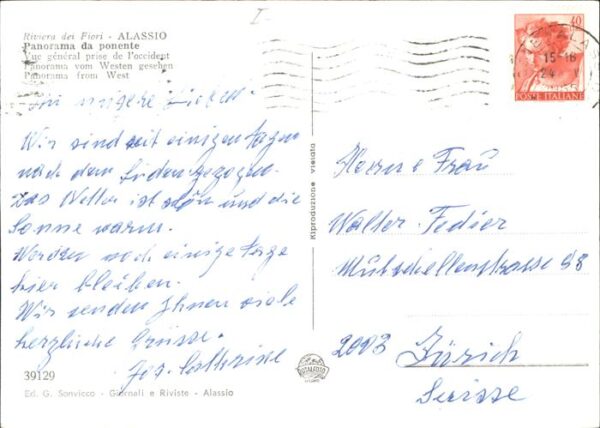 Riviera dei Fiori - ALASSIO
Panorama da ponente
Vue général prise de l'occident
Panorama vom Westen gesehen
Panorama from West
Wir sind seit einigen Tagen
nach dem Süden gezogen.
Das Wetter ist schön und die
Sonne warm.
Werden noch einige Tage
hier bleiben.
Wir senden Ihnen viele
herzliche Grüsse.
39129
Ed. G. Sonvico - Giornali e Riviste - Alassio
Riproduzione vietata
40
POSTE ITALIANE
15-16
24 V
Herrn e Frau
Walter Fedier
Mutschellenstrasse 58
2003 Zürich
Svisse